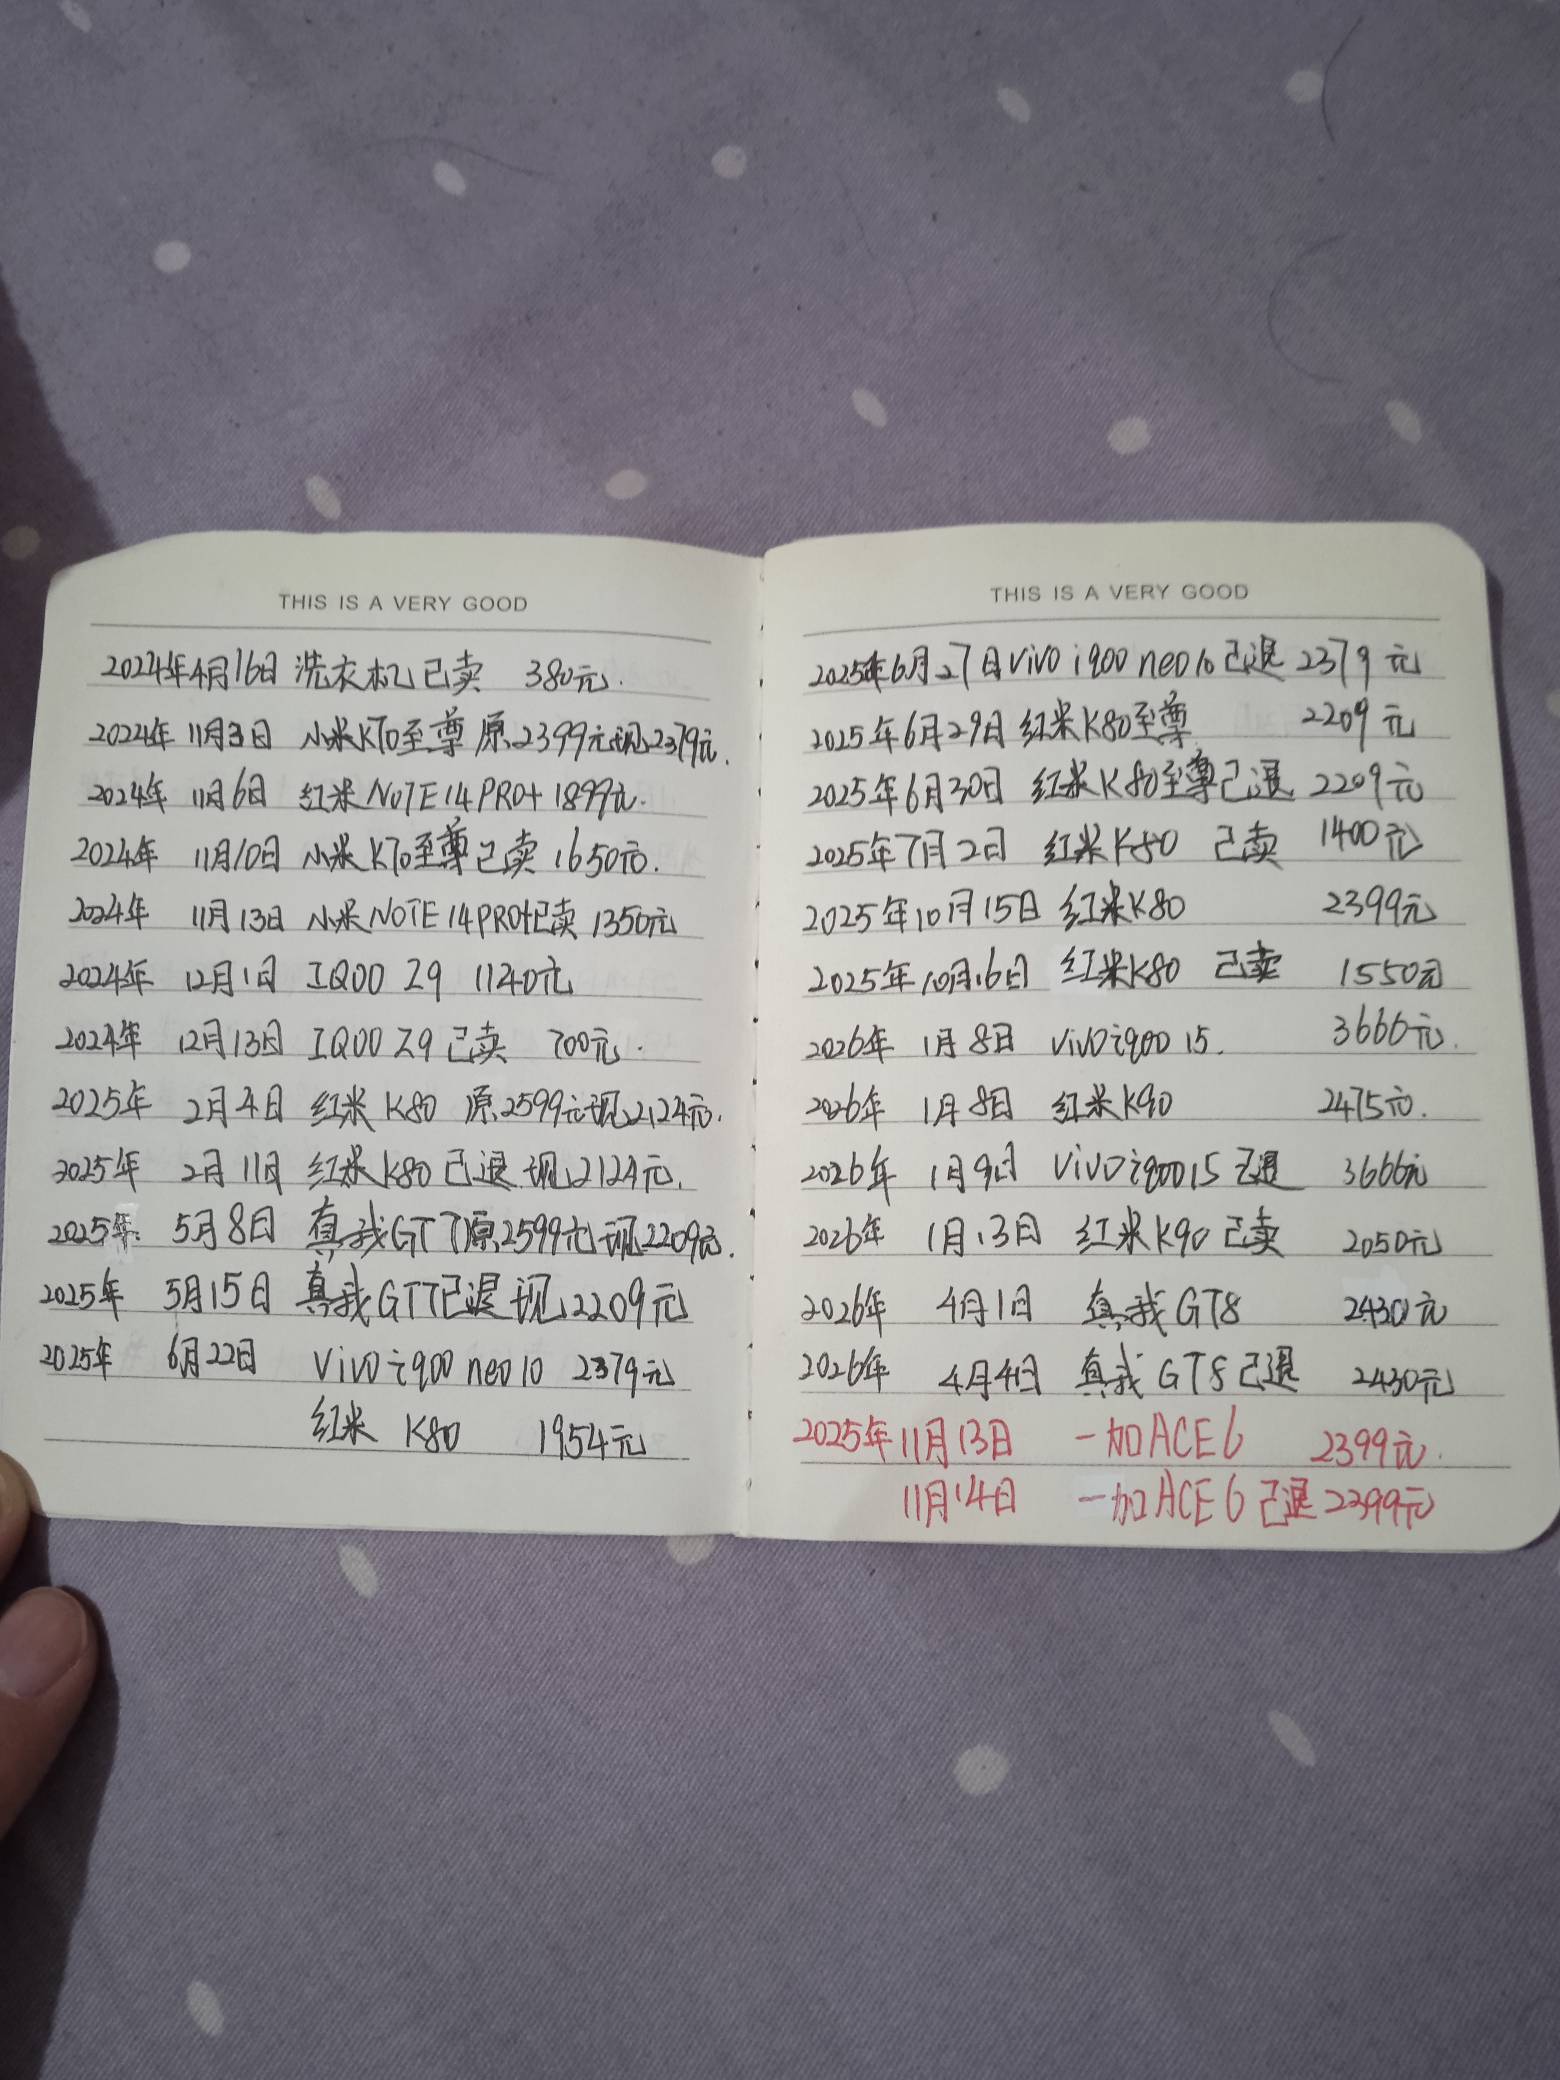 THIS IS A VERY GOOD
2024年4月16日 洗衣机已卖 380元.
2024年 11月3日 小米K70至尊 原2399元现2379元.
2024年 11月6日 红米 NOTE 14 PRO+ 1899元.
2024年 11月10日 小米 K70至尊已卖 1650元.
2024年 11月13日 小米 NOTE 14 PRO+已卖 1350元
2024年 12月1日 IQOO Z9 1140元
2024年 12月13日 IQOO Z9 已卖 700元.
2025年 2月4日 红米 K80 原2599元现2124元.
2025年 2月11日 红米 K80 已退 现2124元.
2025年 5月8日 真我GT7原2599元现2209元.
2025年 5月15日 真我GT7已退 现2209元
2025年 6月22日 ViVO iqoo neo 10 2379元
红米 K80 1954元
THIS IS A VERY GOOD
2025年6月27日 ViVO iqoo neo 10 已退 2379元
2025年6月29日 红米K80至尊 2209元
2025年6月30日 红米K80至尊已退 2209元
2025年7月2日 红米K80 已卖 1400元
2025年10月15日 红米K80 2399元
2025年10月16日 红米K80 已卖 1550元
2026年 1月8日 ViVO iqoo 15. 3666元.
2026年 1月8日 红米K90 2475元.
2026年 1月9日 ViVO iqoo 15 已退 3666元
2026年 1月13日 红米K90已卖 2050元
2026年 4月1日 真我 GT8 2430元
2026年 4月4日 真我 GT8 已退 2430元
2025年11月13日 一加ACE 6 2399元.
11月14日 一加ACE 6 已退 2399元